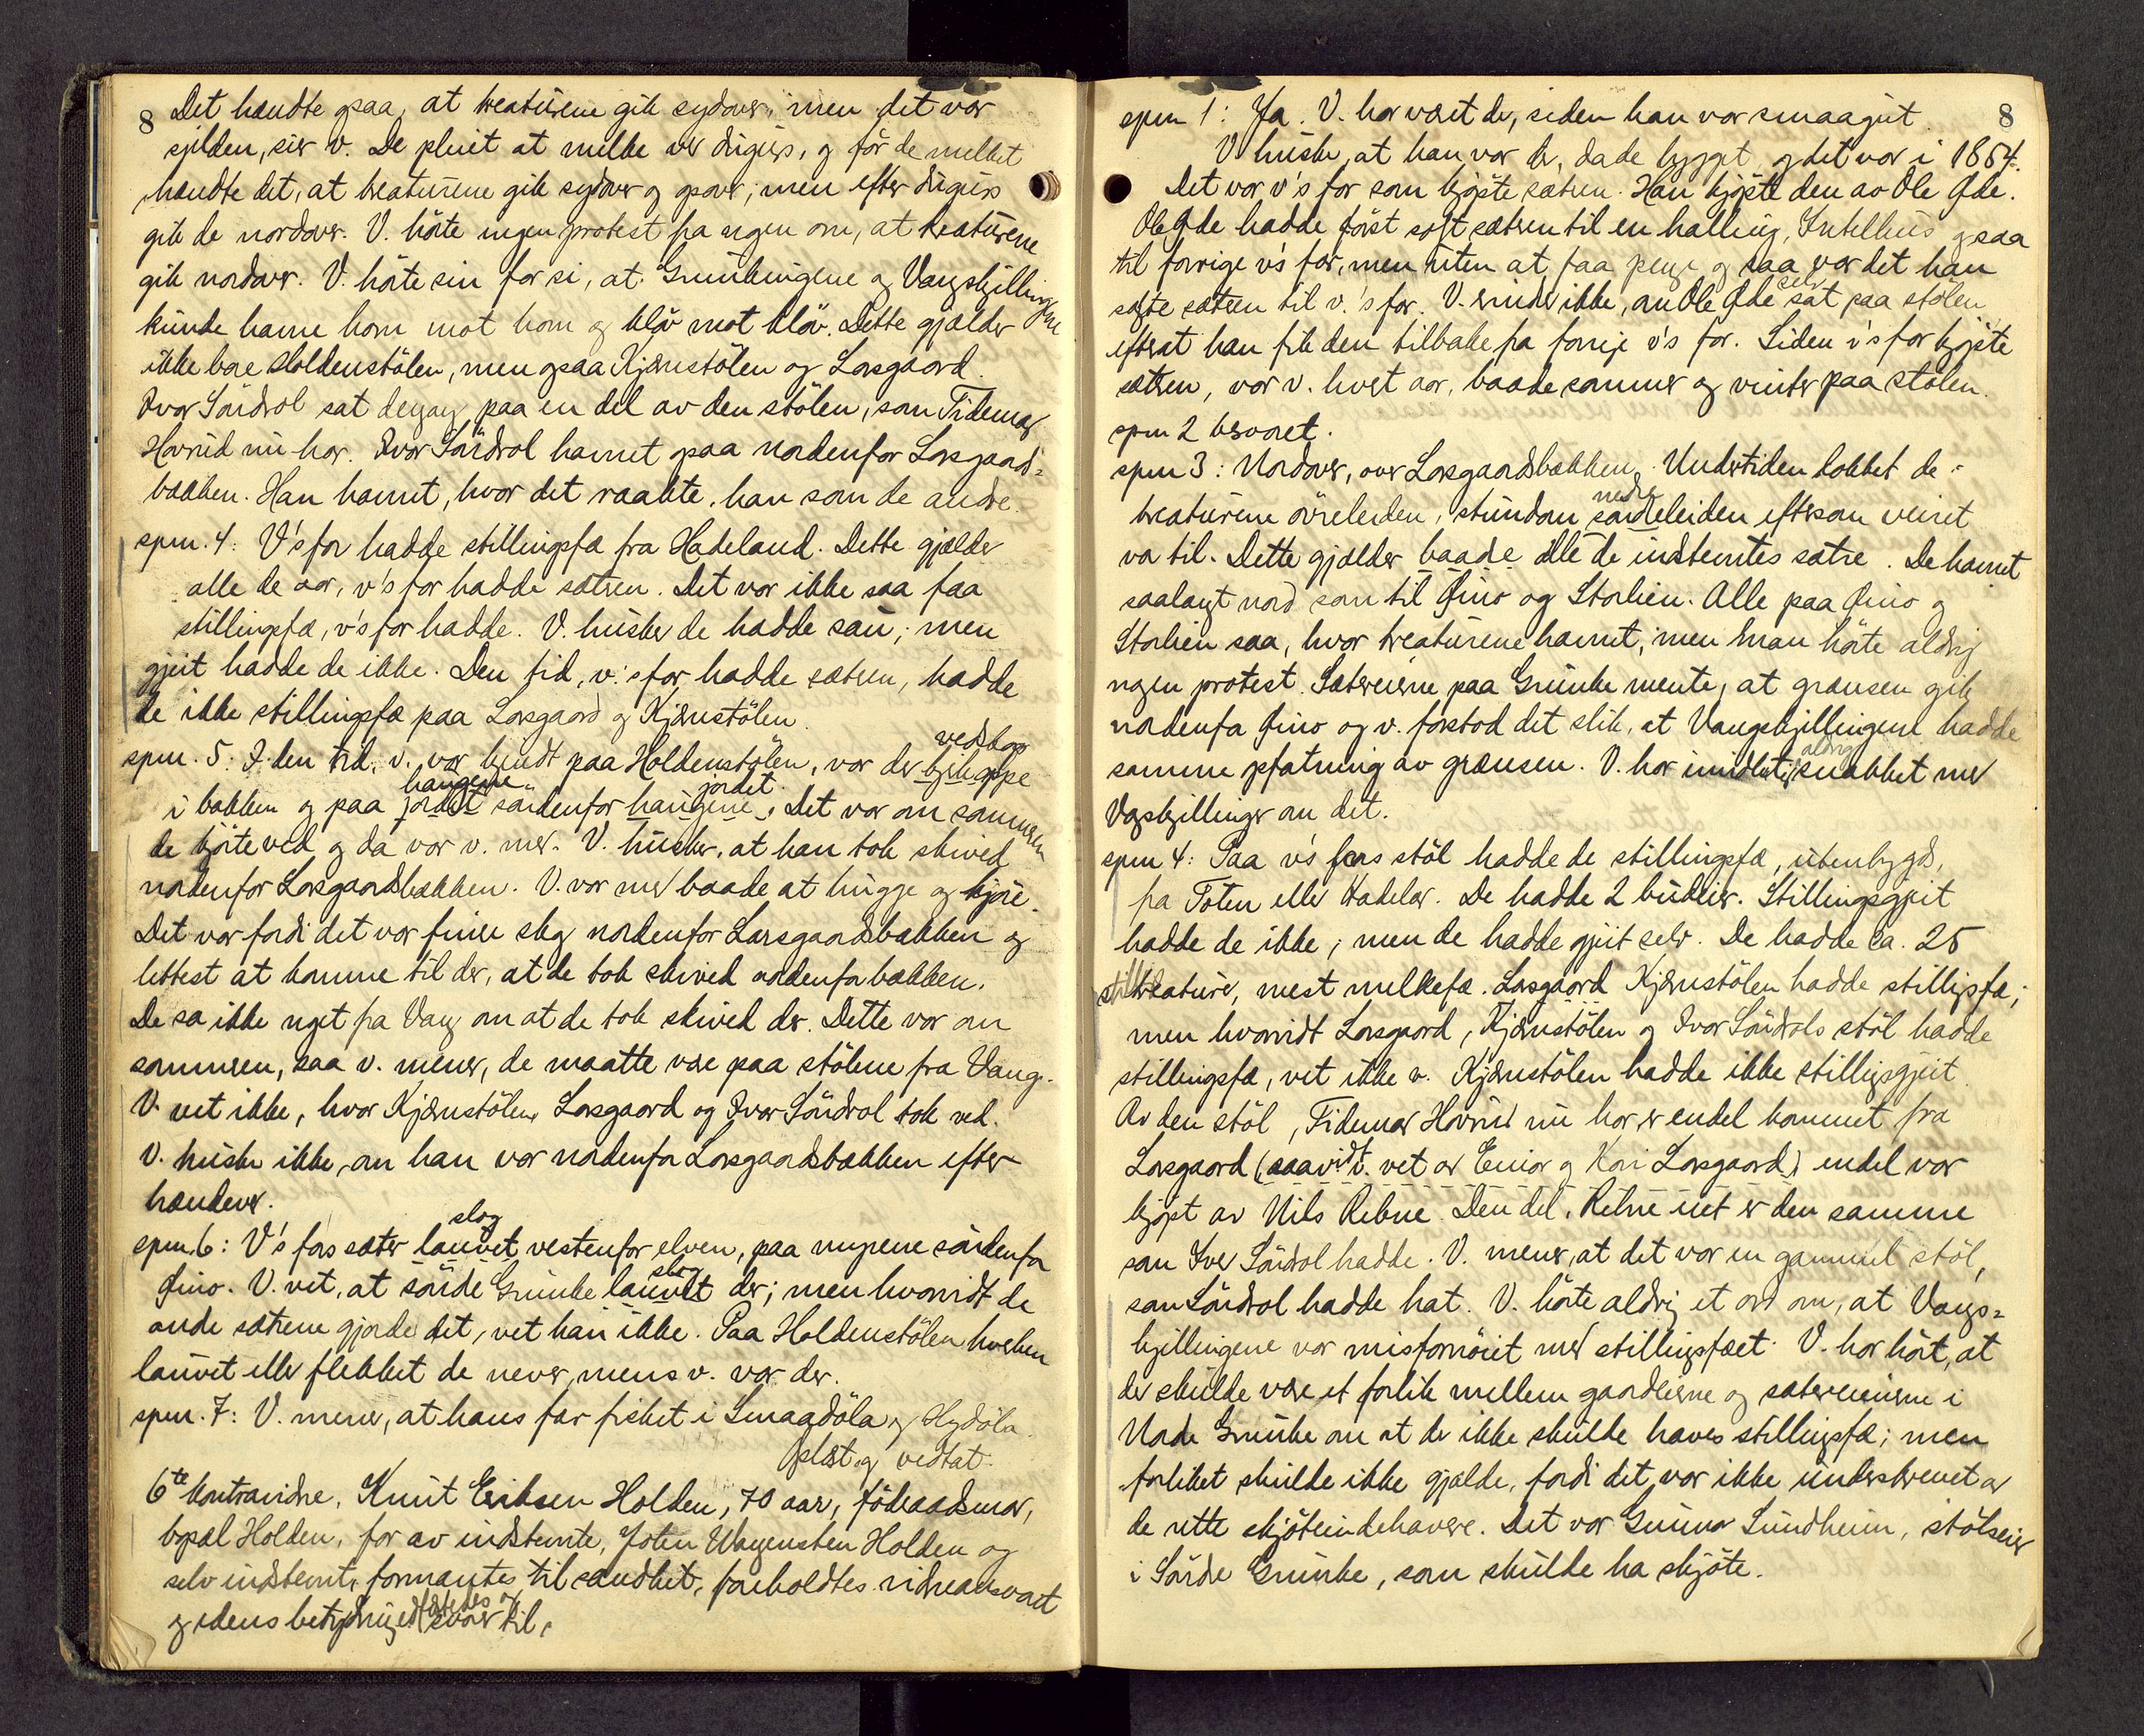 8 Det hændte ogsaa, at kreaturene gik sydover, men det var
sjelden, sier v. De pleiet at melke ved duguis, og før de melket
hændte det, at kreaturene gik sydover og opover; men efter duguis
gik de nordover. V. hörte ingen protest fra ngen om, at kreaturene
gik nordover. V. hörte sin far si, at Grunkingene og Vangskjillingene
kunde havne horn mot horn og klöv mot klöv. Dette gjælder
ikke bare Holdenstölen, men ogsaa Kjærnstölen og Losgaard.
Ivar Söndrol sat dengang paa en del av den stölen, som Tidemar
Havrud nu har. Ivar Söndrol havnet ogsaa nordenfor Losgaards=
bækken. Han havnet, hvor det raakte, han som de andre.
spm. 4: V's far hadde stillingsfæ fra Hadeland. Dette gjælder
alle de aar, v's far hadde sætren. Det var ikke saa faa
stillingsfæ, v's far hadde. V. husker de hadde sau; men
gjeit hadde de ikke. Den tid, v.'s far hadde sætren, hadde
de ikke stillingsfæ paa Losgaard og Kjærnstölen.
vedskog
spm. 5: I den tid, v. var kjendt paa Holdenstölen, var der
haugene jordet
i bakken og paa jordet söndenfor haugene. Det var om sommeren
de kjörte ved og da var v. med. V. husker, at han tok skived
nordenfor Losgaardsbækken. V. var med baade at hugge og kjöre.
Det var fordi det var finere skog nordenfor Losgaardsbækken og
lettest at komme til der, at de tok skived nordenfor bækken.
De sa ikke noget fra Vang om at de tok skived der. Dette var om
sommeren, saa v. mener, de maatte være paa stölene fra Vang.
V. vet ikke, hvor Kjærnstölen, Losgaard og Ivar Söndrol tok ved.
V. husker ikke, om han var nordenfor Losgaardsbækken efter-
hændever.
slog
spm. 6: V's fars sæter lauvet vestenfor elven, paa myrene söndenfor
slog
Grino. V. vet, at söndre Grunke lauvet der; men hvorvidt de
andre sætrene gjorde det, vet han ikke. Paa Holdenstölen hverken
lauvet eller flekket de never, mens v. var der.
spm. 7: V. mener, at hans far fisket i Smaadöla og Flydöla.
Oplæst og vedtat.
6te kontravidne, Knut Eriksen Holden, 70 aar, föderaadsmar,
bopæl Holden, far av indstevnte, Joten Wangensten Holden og
selv indstevnt, formantes til sandhet, foreholdtes vidneansvaret
og edens betydning
spm 1: Ja. V. har været der, siden han var smaagut. 8
V. husker, at han var der, da de bygget og det var i 1864.
Det var v's far som kjöpte sætren. Han kjöpte den av Ole Ode.
Ole Ode hadde först solgt sætren til en halling, Intelhus ogsaa
til forrige v's far, men uten at faa penge og saa var det han
selv
solgte sætren til v.'s far. V. minder ikke, om Ole Ode sat paa stölen
efterat han fik den tilbake fra forrige v's far. Siden v's far kjöpte
sætren, var v. hvert aar, baade sommer og vinter paa stölen.
spm 2 besvaret.
spm 3: Nordover, over Losgaardsbækken. Undertiden lokket de
nedre
kreaturene övreleiden, stundom söndreleiden eftersom veiret
va til. Dette gjælder baade alle de indstevntes sætre. De havnet
saalangt nord som til Grino og Storlien. Alle paa Grino og
Storlien saa, hvor kreaturene havnet, men man hörte aldrig
ngen protest. Sætereierne paa Grunke mente, at grænsen gik
nordenfor Grino og v. forstod det slik, at Vangskjillingene hadde
aldrig
samme opfatning av grænsen. V. har imidlertid snakket med
Vangskjillinger om det.
spm 4: Paa v's fars stöl hadde de stillingsfæ, utenbygds,
fra Toten eller Hadeland. De hadde 2 budeier. Stillingsgjeit
hadde de ikke; men de hadde gjeit selv. De hadde ca. 25
kreature, mest melkefæ. Losgaard Kjærnstölen hadde stillingsfæ;
men hvorvidt Losgaard, Kjærnstölen og Ivar Söndrols stöl hadde
stillingsfæ, vet ikke v. Kjærnstölen hadde ikke stillingsgjeit.
Av den stöl, Tidemar Havrud nu har, er endel kommet fra
Losgaard (saavidt v. vet av Einar og Kari Losgaard) endel var
kjöpt av Nils Rebne. Den del, Rebne eiet er den samme
som Iver Söndrol hadde. V. mener, at det var en gammel stöl,
som Söndrol hadde hat. V. hörte aldrig et ord om, at Vangs=
kjillingene var misfornöiet med stillingsfæet. V. har hört, at
der skulde være et forlik mellem gaardeierne og sætereierne i
Nordre Grunke om at der ikke skulde haves stillingsfæ; men
forliket skulde ikke gjælde, fordi det var ikke underskrevet av
de rette skjöteindehavere. Det var Gunnar Sundheim, stölseier
i Söndre Grunke, som skulde ha skjöte.